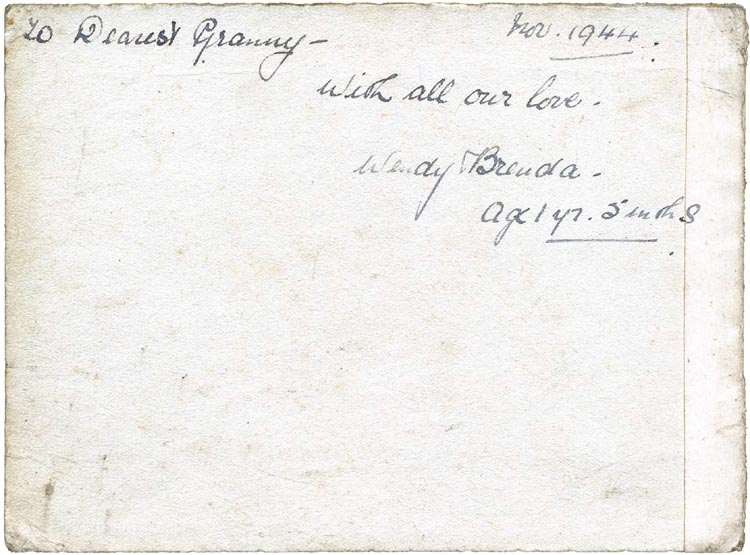 To Dearest Granny -
Nov. 1944.
With all our love.
Wendy Brenda.
Age 1 yr. 5 mths